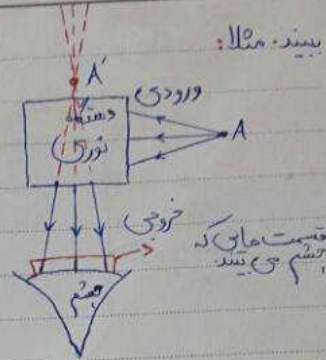 ببیند. مثلا:
A'
ورودی
دستگاه
نوری
A
خروجی
قسمت هایی که
چشم می بیند
چشم